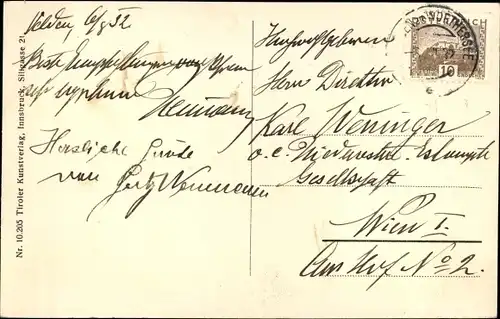 Velden, 6/8 32
Beste Empfehlungen von Ihrem
sehr ergebenen
Neumann
Herzliche Grüße
von Neumann
Nr. 10.205 Tiroler Kunstverlag, Innsbruck, Sillgasse 21
Hochwohlgeboren
Herrn Direktor
Karl Weninger
Gesellschaft
Wien I.
Am Hof No 2.
10